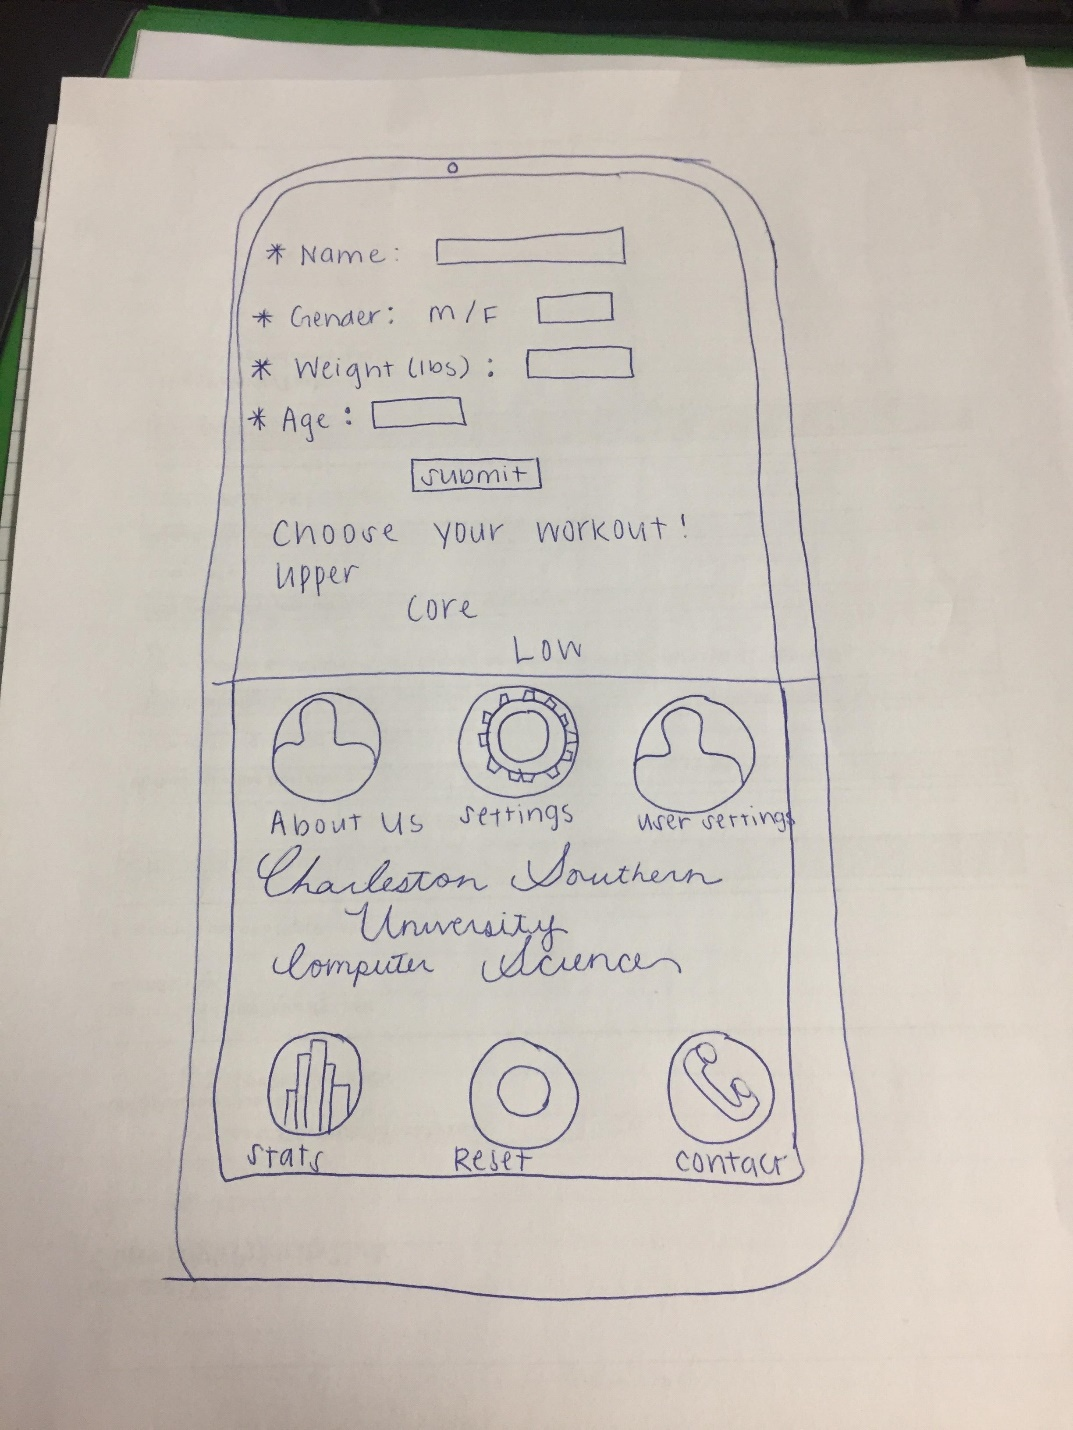 * Name:
* Gender: M/F
* Weight (lbs) :
* Age :
submit
Choose your workout!
Upper
Core
Low
About Us settings user settings
Charleston Southern
University
Computer Science
Stats Reset Contact